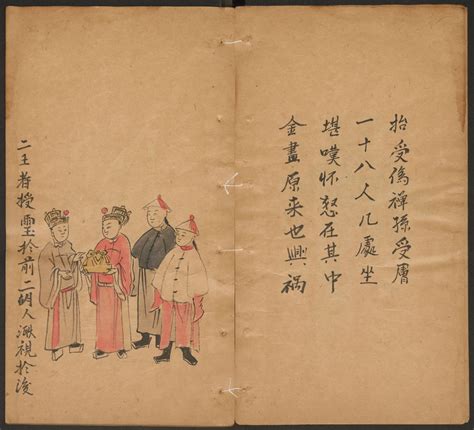 抬受僞禪孫受
一十八人几處坐
堪嘆怀怒在其中
金畫原来也興禍
二王者授璽於前二胡人視於後